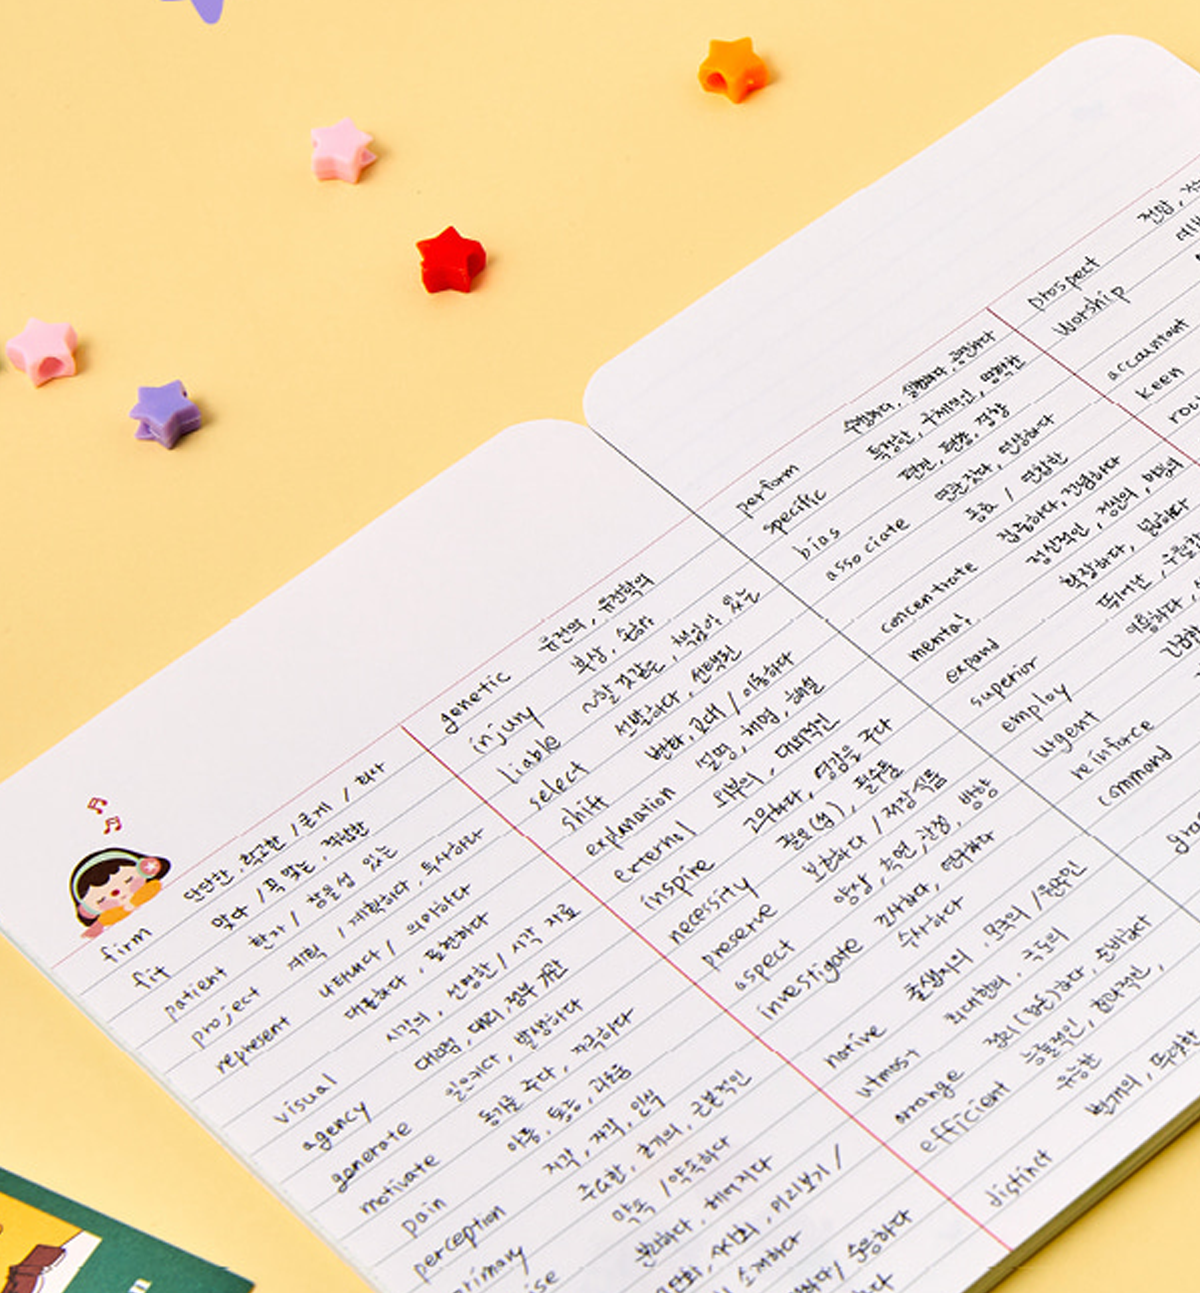 firm 단단한, 확고한 / 굳게 / 회사
fit 맞다 / 꼭 맞는, 적합한
patient 환자 / 참을성 있는
project 계획 / 계획하다, 투사하다
represent 나타내다 / 의미하다
대표하다, 표현하다
visual 시각의, 선명한 / 시각 자료
agency 대리점, 대리, 정부 기관
generate 일으키다, 발생하다
motivate 동기를 주다, 자극하다
pain 아픔, 통증, 괴로움
perception 지각, 자각, 인식
primary 주요한, 초기의, 근본적인
약속 / 약속하다
분리하다, 헤어지다
genetic 유전의, 유전학의
injury 부상, 손해
liable ~할 것 같은, 책임이 있는
select 선발하다, 선택된
shift 변화, 교대 / 이동하다
explanation 설명, 해명, 해설
external 외부의, 대외적인
inspire 고무하다, 영감을 주다
necessity 필요(성), 필수품
preserve 보존하다 / 저장 식품
aspect 양상, 측면, 관점, 방향
investigate 조사하다, 연구하다
수사하다
native 출생지의, 모국의 / 원주민
utmost 최대한의, 극도의
arrange 정리(정돈)하다, 준비하다
efficient 능률적인, 효과적인,
유능한
distinct 별개의, 뚜렷한
perform 수행하다, 실행하다, 공연하다
specific 특정한, 구체적인, 명확한
bias 편견, 편중, 경향
associate 연관 짓다, 연상하다
동료 / 연합한
concentrate 집중하다, 전념하다
mental 정신적인, 정신의, 마음의
expand 확장하다,
superior 뛰어난, 우수한
employ
urgent
reinforce
command
prospect 전망,
worship
accountant
keen